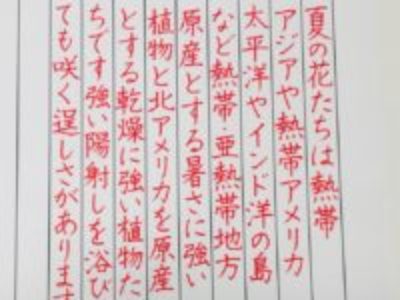 夏の花たちは熱帯
アジアや熱帯アメリカ
太平洋やインド洋の島
など熱帯・亜熱帯地方
原産とする暑さに強い
植物と北アメリカを原産
とする乾燥に強い植物た
ちです強い陽射しを浴び
ても咲く逞しさがあります